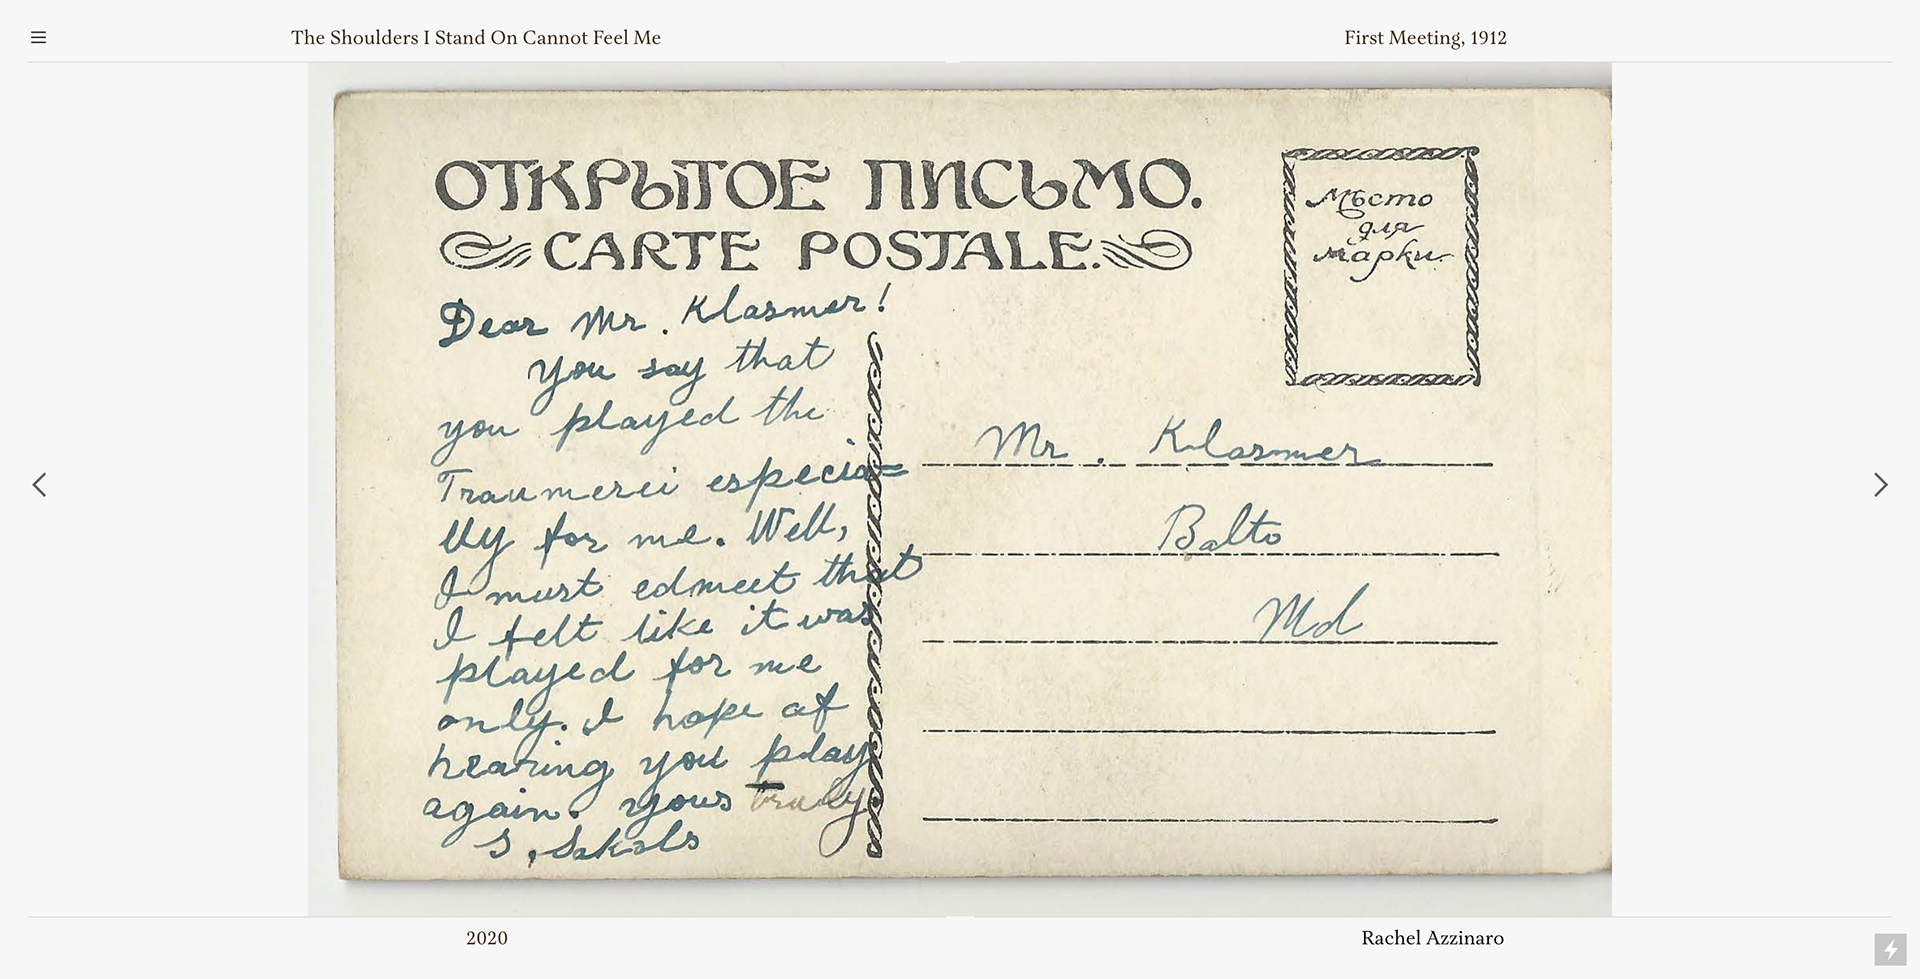 The Shoulders I Stand On Cannot Feel Me
First Meeting, 1912
ОТКРЫТОЕ ПИСЬМО.
CARTE POSTALE.
Мѣсто
для
марки.
Dear Mr. Klasmer!
You say that
you played the
Traumerei especia=
lly for me. Well,
I must edmeet that
I felt like it was
played for me
only. I hope af
hearing you play
again. Yours truly
S. Sakols
Mr. Klasmer
Balto
Md
2020
Rachel Azzinaro